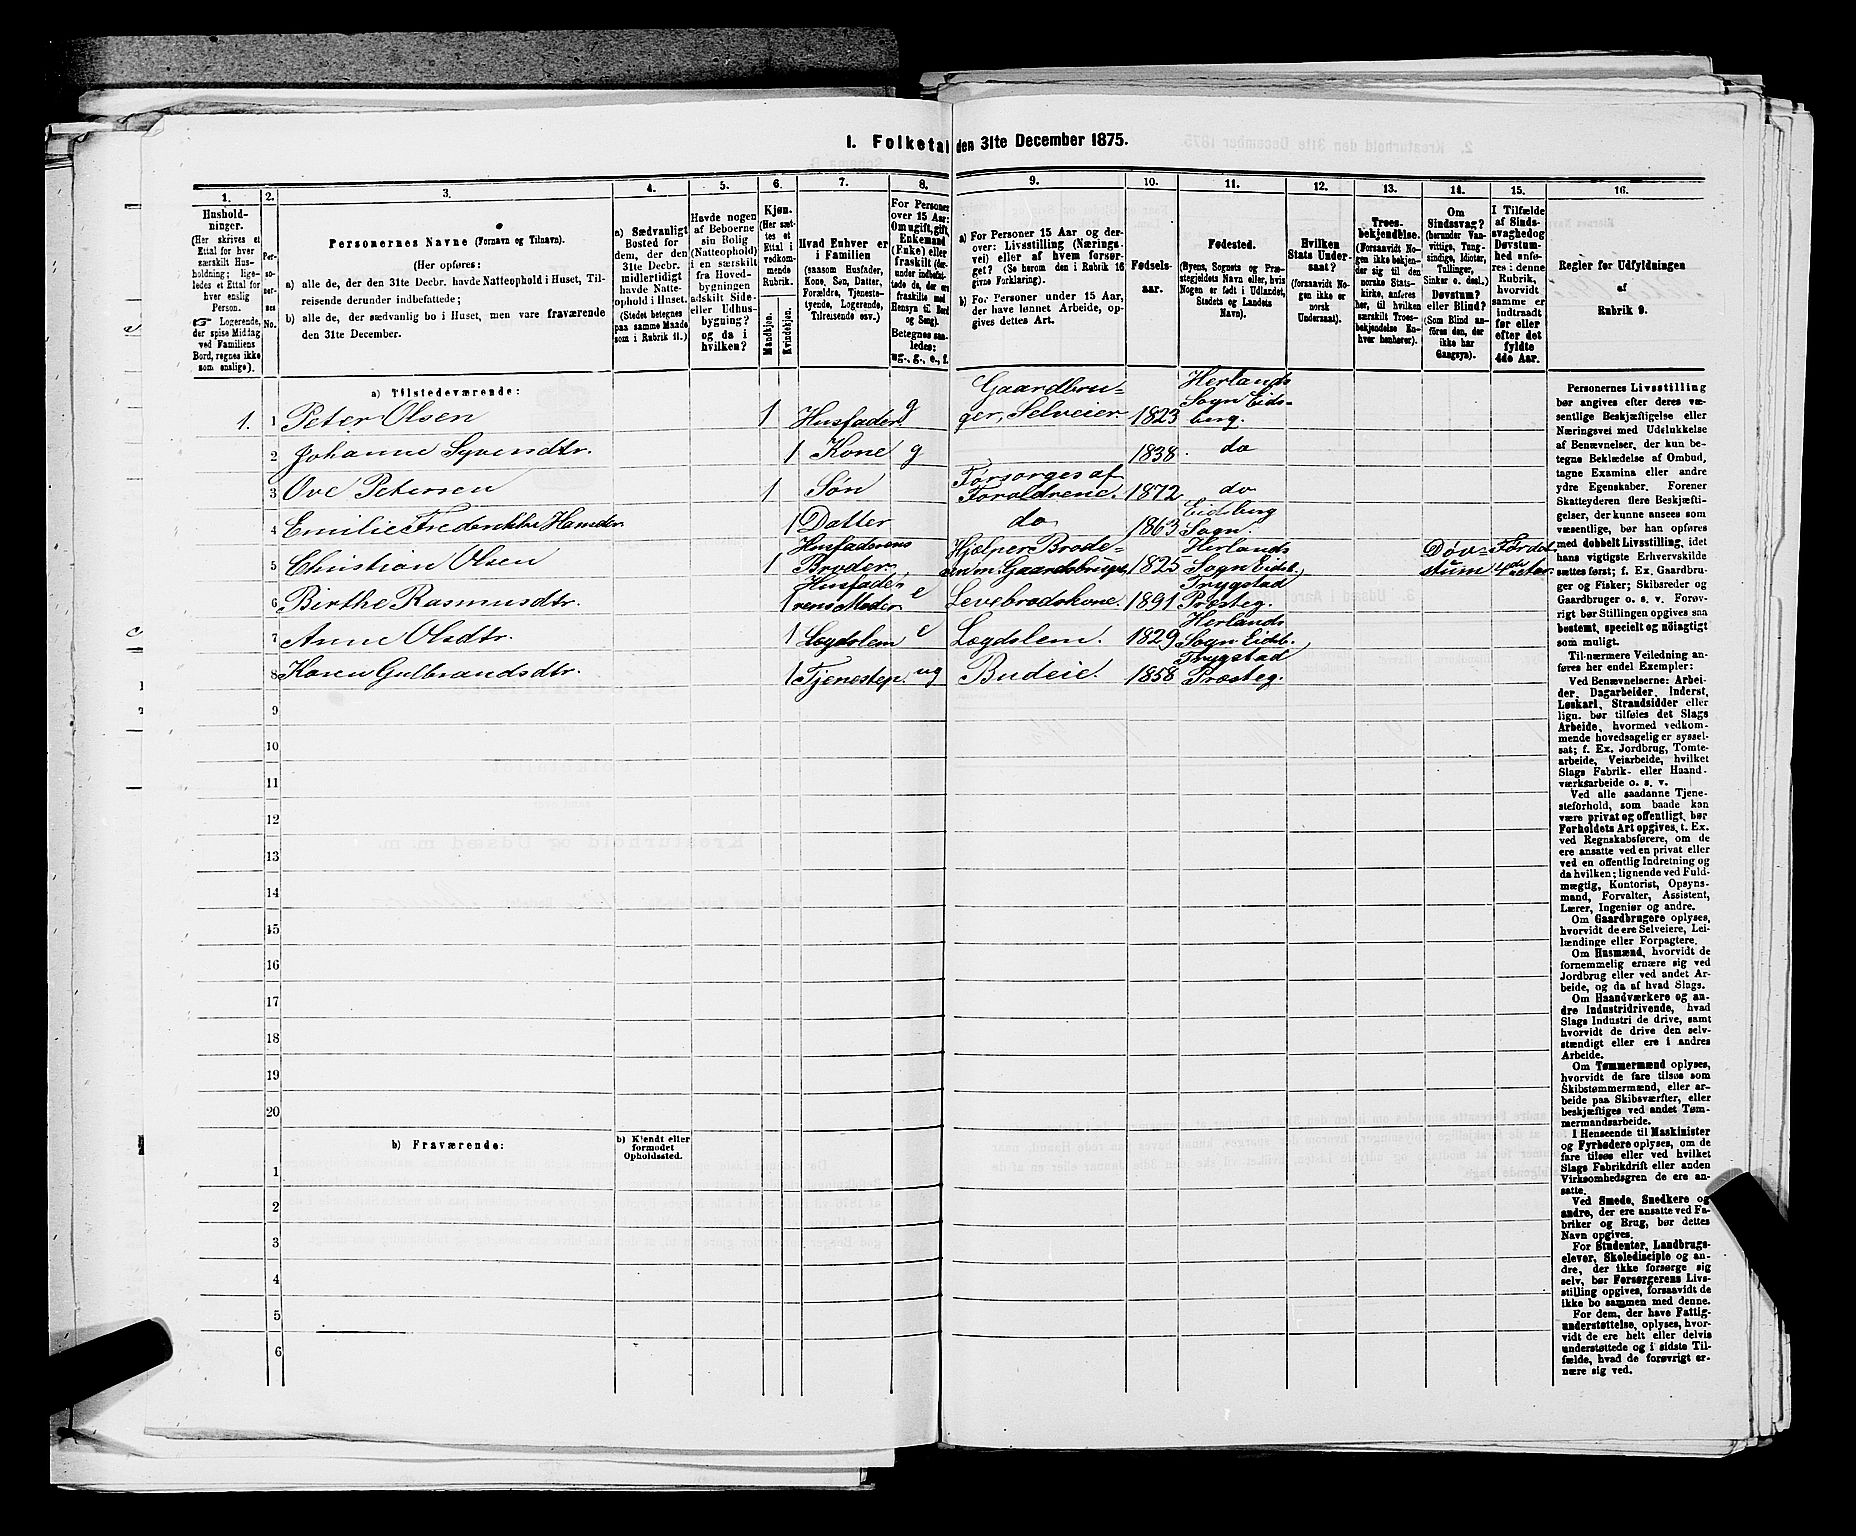 1. Folketal den 31te December 1875.
1. 2. 3. 4. 5. 6. 7. 8. 9. 10. 11. 12. 13. 14. 15. 16.
Hushold-
ninger.
(Her skrives et
Ettal for hver
særskilt Hus-
holdning; lige-
ledes et Ettal
for hver enslig
Person.
Logerende,
der spise Middag
ved Familiens
Bord, regnes ikke
som enslige).
Per-
so-
ner-
nes
No.
Personernes Navne (Fornavn og Tilnavn).
(Her opføres:
a) alle de, der den 31te Decbr. havde Natteophold i Huset, Til-
reisende derunder indbefattede;
b) alle de, der sædvanlig bo i Huset, men vare fraværende
den 31te December.
a) Sædvanligt
Bosted for
dem, der den
31te Decbr.
midlertidigt
havde Natte-
ophold i Huset.
(Stedet betegnes
paa samme Maade
som i Rubrik 11.)
Havde nogen
af Beboerne
sin Bolig
(Natteophold)
i en særskilt
fra Hoved-
bygningen
adskilt Side-
eller Udhus-
bygning?
og da i
hvilken?
Kjøn.
(Her sæt-
tes et
Ettal i
vedkom-
mende
Rubrik.
Mandkjøn.
Kvindekjøn.
Hvad Enhver er
i Familien
(saasom Husfader,
Kone, Søn, Datter,
Forældre, Tjeneste-
tyende, Logerende,
Tilreisende osv.)
For Personer
over 15 Aar:
Om ugift, gift,
Enkemand
(Enke) eller
fraskilt (der-
under indbefat-
tede de, der ere
fraskilte med
Hensyn til Bord
og Seng).
Betegnes saa-
ledes:
ug., g., e., f.
a) For Personer 15 Aar og der-
over: Livsstilling (Nærings-
vei) eller af hvem forsør-
get? (Se herom den i Rubrik 16
givne Forklaring).
b) For Personer under 15 Aar,
der have lønnet Arbeide, op-
gives dettes Art.
Fødsels-
aar.
Fødested.
(Byens, Sognets og Præ-
stegjeldets Navn eller, hvis
Nogen er født i Udlandet,
Stedets og Landets
Navn).
Hvilken
Stats Under-
saat?
(forsaavidt No-
gen ikke er
norsk
Undersaat).
Troes-
bekjendelse.
(Forsaavidt No-
gen ikke bekjen-
der sig til den
norske Stats-
kirke, anføres
her, til hvilken
særskilt Troes-
bekjendelse En-
hver henhører).
Om
Sindssvag?
(herunder Van-
vittige, Tung-
sindige, Idioter,
Tullinger,
Sinker o. desl.)
Døvstum?
eller Blind?
(Som Blind an-
føres den, der
ikke har
Gangsyn).
I Tilfælde
af Sinds-
svaghed og
Døvstum-
hed anfø-
res i denne
Rubrik,
hvorvidt
samme er
indtraadt
før eller
efter det
fyldte
4de Aar.
Regler før Udfyldningen
af
Rubrik 9.
a) Tilstedeværende:
1. 1 Peter Olsen 1 Husfader g Gaardbru-
ger, Selveier 1823 Herlands
Sogn Eids-
berg.
2 Johanne Syvendtr. 1 Kone g 1838. do
3 Ove Petersen 1 Søn Forsørges af
Foraldrene. 1872 do
4 Emilie Frederikke Hansdtr 1 Datter do 1863 Eidsberg
Sogn.
5 Christian Olsen 1 Husfaderens
Broder. Hjælper Brode-
ren m. Gaardsbruget 1825 Herlands
Sogn Eidsb. Døv-
stum Før det
4de Aar.
6 Birthe Rasmusdtr. 1 Husfade-
rens Moder e Levebrodskone. 1891 Trygstad
Præsteg.
7 Anne Olsdtr. 1 Lægdslem e Lægdslem. 1829 Herlands
Sogn Eidsb.
8 Karen Gulbrandsdtr. 1 Tjenestep. ug Budeie. 1858 Trygstad
Præsteg.
9
10
11
12
13
14
15
16
17
18
19
20
b) Fraværende:
b) Kjendt eller
formodet
Opholdssted.
1
2
3
4
5
6
Personernes Livsstilling
bør angives efter deres væ-
sentlige Beskjæftigelse eller
Næringsvei med Udelukkelse
af Benævnelser, der kun be-
tegne Beklædelse af Ombud,
tagne Examina eller andre
ydre Egenskaber. Forener
Skatteyderen flere Beskjæfti-
gelser, der kunne ansees som
væsentlige, bør han opføres
med dobbelt Livsstilling, idet
hans vigtigste Erhvervskilde
sættes først; f. Ex. Gaardbru-
ger og Fisker; Skibsreder og
Gaardbruger o. s. v. Forøv-
rigt bør Stillingen opgives saa
bestemt, specielt og nøiagtigt
som muligt.
Til nærmere Veiledning an-
føres her endel Exempler:
Ved Benævnelserne: Arbei-
der, Dagarbeider, Inderst,
Løskarl, Strandsidder eller
lign. bør tilføies det Slags
Arbeide, hvormed vedkom-
mende hovedsagelig er syssel-
sat; f. Ex. Jordbrug, Tomte-
arbeide, Veiarbeide, hvilket
Slags Fabrik- eller Haand-
værksarbeide o. s. v.
Ved alle saadanne Tjene-
steforhold, som baade kan
være privat og offentligt, bør
Forholdets Art opgives, f. Ex.
ved Regnskabsførere, om de
ere ansatte ved en privat eller
ved en offentlig Indretning og
da hvilken; lignende ved Fuld-
mægtig, Kontorist, Opsyns-
mand, Forvalter, Assistent,
Lærer, Ingeniør og andre.
Om Gaardbrugere oplyses,
hvorvidt de ere Selveiere, Lei-
lændinge eller Forpagtere.
Om Husmænd, hvorvidt de
fornemmelig ernære sig ved
Jordbrug eller ved andet Ar-
beide, og da af hvad Slags.
Om Haandværkere og an-
dre Industridrivende, hvad
Slags Industri de drive, samt
hvorvidt de drive den selv-
stændigt eller ere i andres
Arbeide.
Om Tømmermænd oplyses,
hvorvidt de fare tilsøs som
Skibstømmermænd, eller ar-
beide paa Skibsværfter, eller
beskjæftiges ved andet Tøm-
mermandsarbeide.
I Henseende til Maskinister
og Fyrbødere oplyses, om de
fare tilsøs eller ved hvilket
Slags Fabrikdrift eller anden
Virksomhedsgren de ere an-
satte.
Ved Smede, Snedkere og
andre, der ere ansatte ved Fa-
briker og Brug, bør dettes
Navn opgives.
For Studenter, Landbrugs-
elever, Skoledisciple og an-
dre, der ikke forsørge sig
selv, bør Forsørgerens Livs-
stilling opgives, forsaavidt de
ikke bo sammen med denne.
For dem, der have Fattig-
understøttelse, oplyses, hvor-
vidt de ere helt eller delvis
understøttede og i sidste Til-
fælde, hvad de forøvrigt er-
nære sig ved.